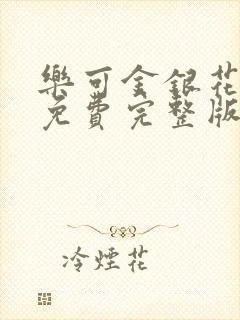 樂可金銀花
免費完整版
冷煙花